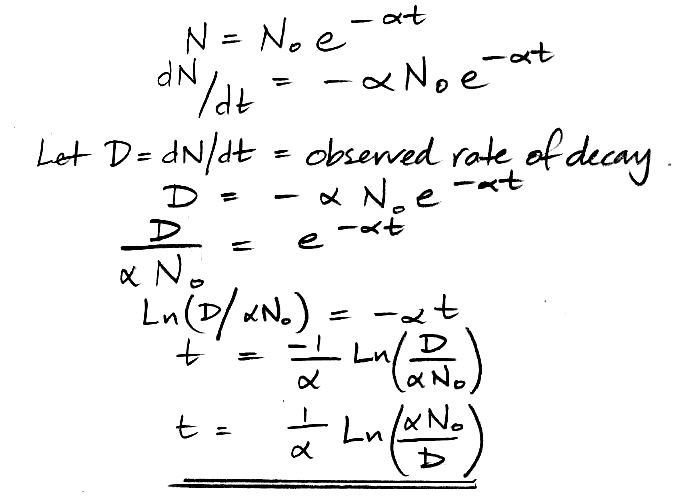 N = N₀ e^(-αt)
dN/dt = -α N₀ e^(-αt)
Let D = dN/dt = observed rate of decay.
D = -α N₀ e^(-αt)
D/(α N₀) = e^(-αt)
Ln(D/αN₀) = -αt
t = -1/α Ln(D/(αN₀))
t = 1/α Ln(αN₀/D)